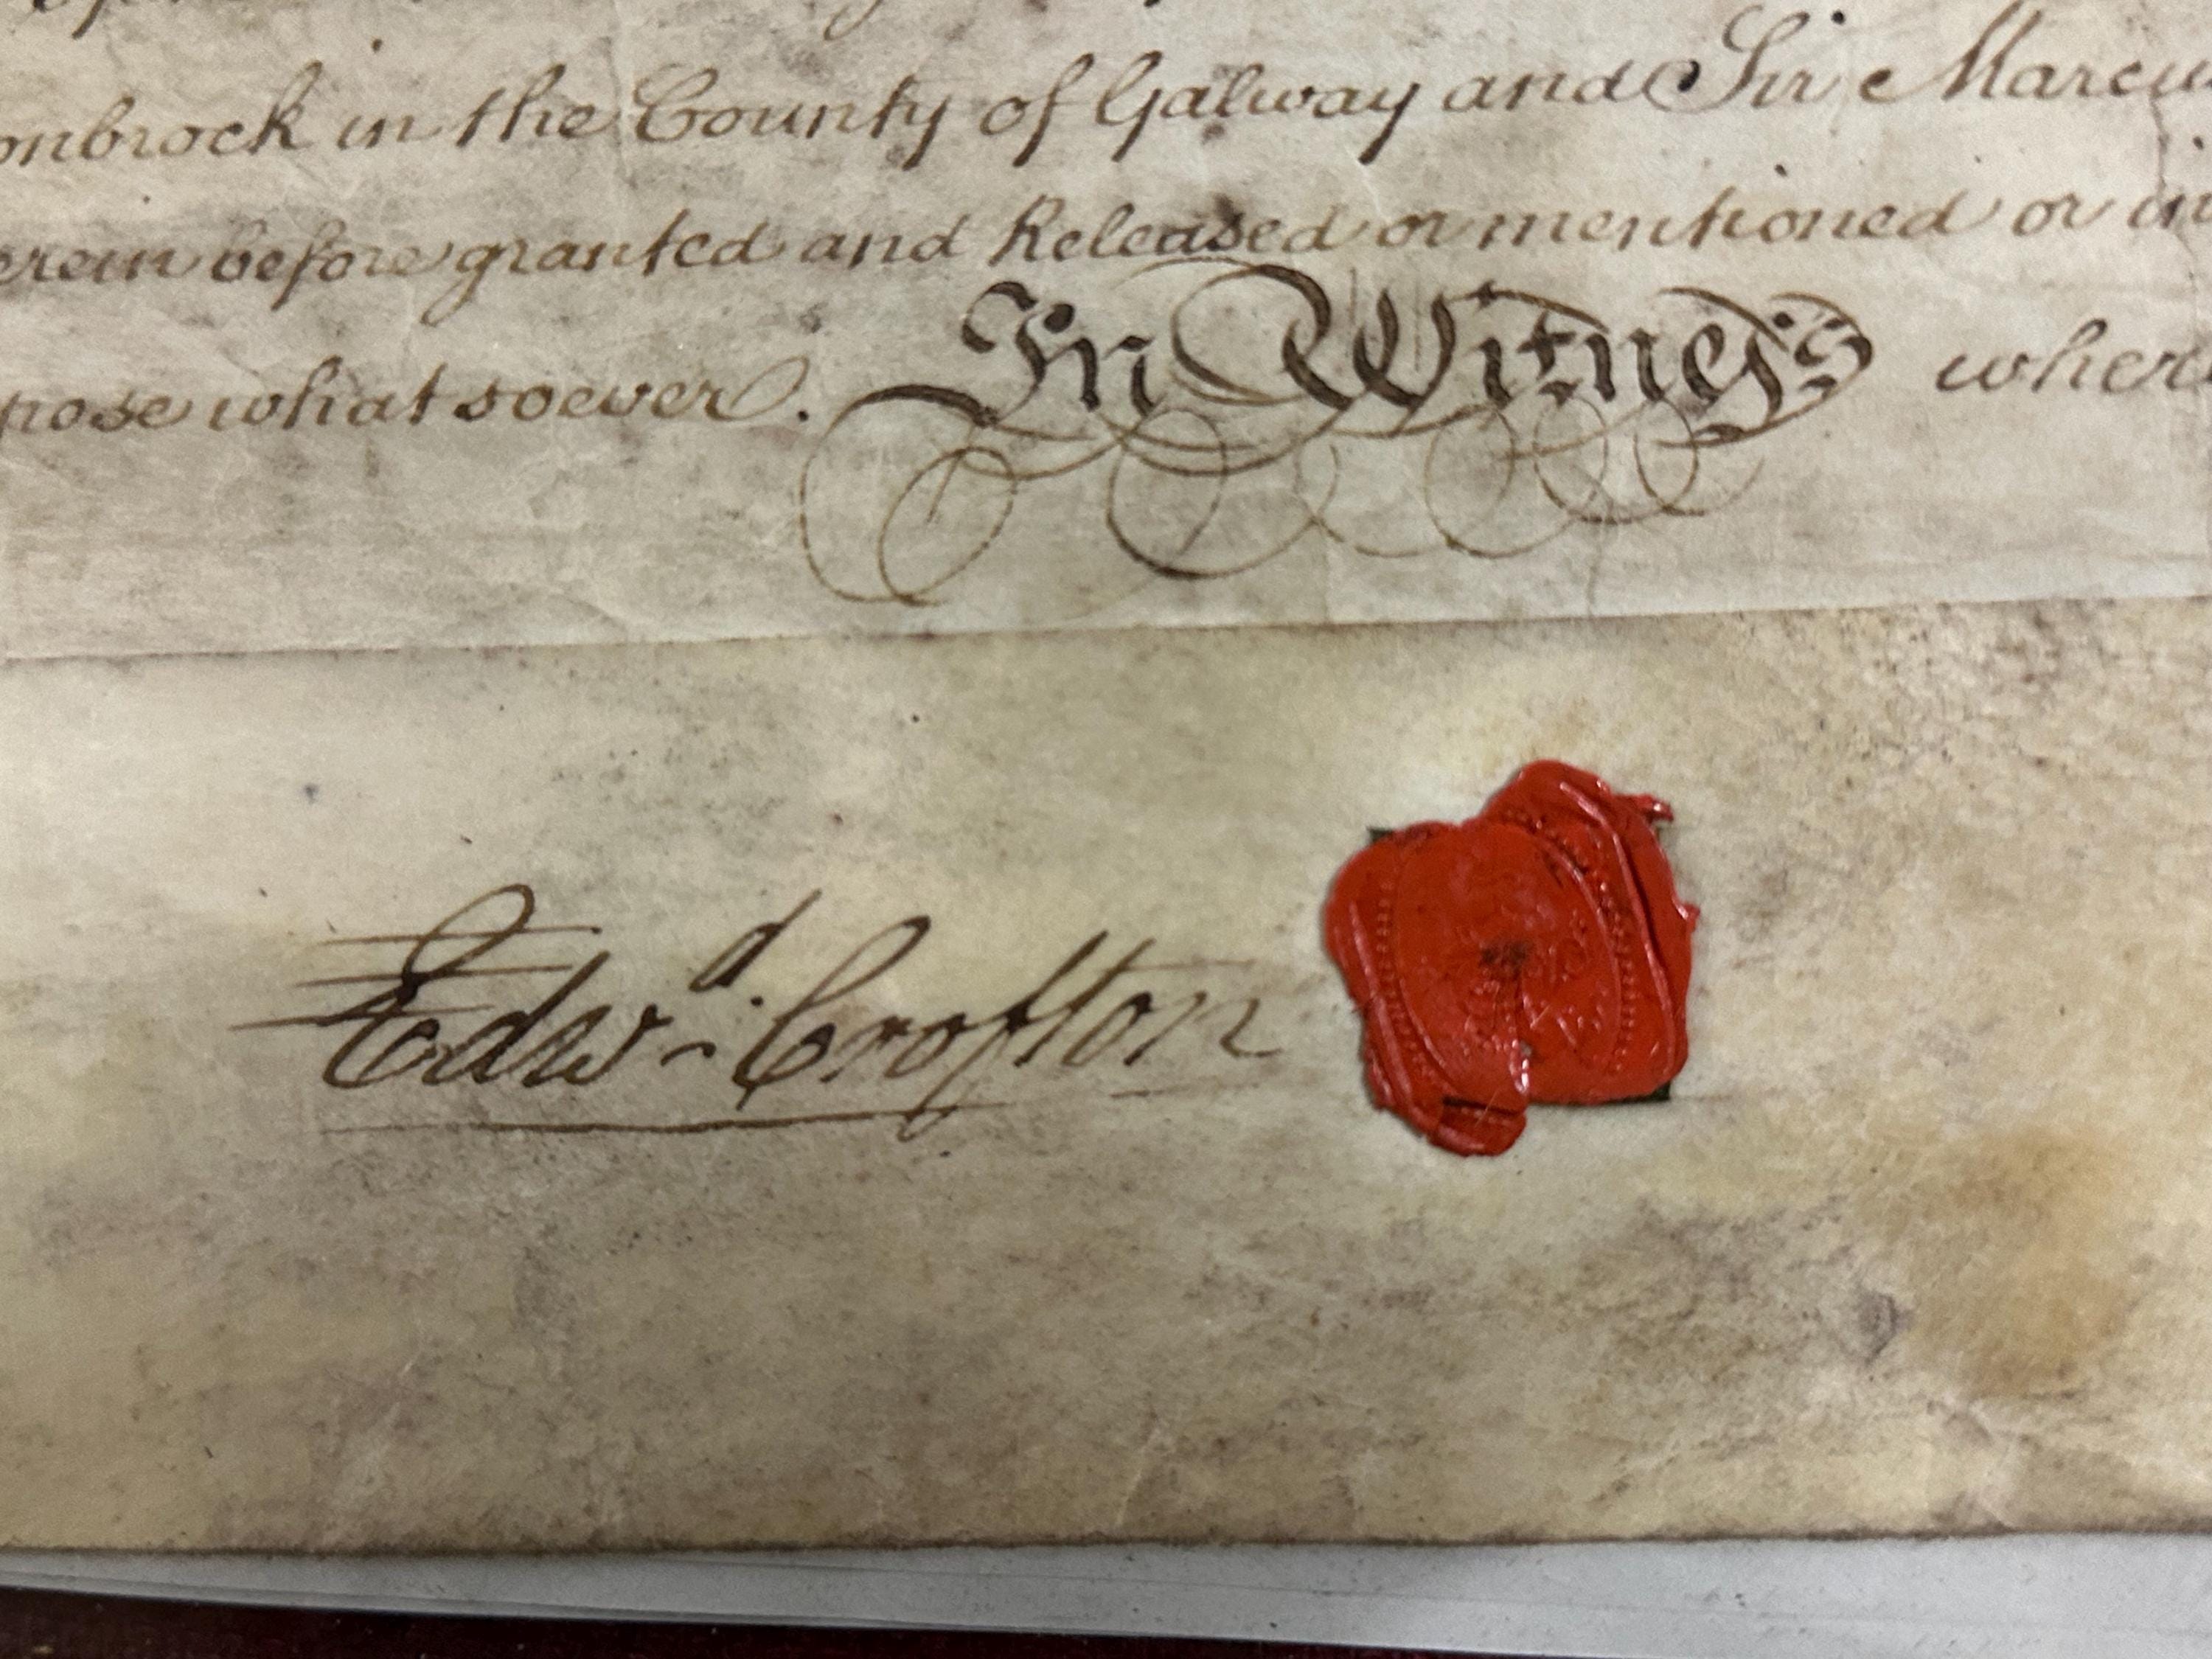 onbrock in the County of Galway and Sir Marcu
erein before granted and Released or mentioned or in
pose whatsoever. In Witness where
Edwd. Crofton